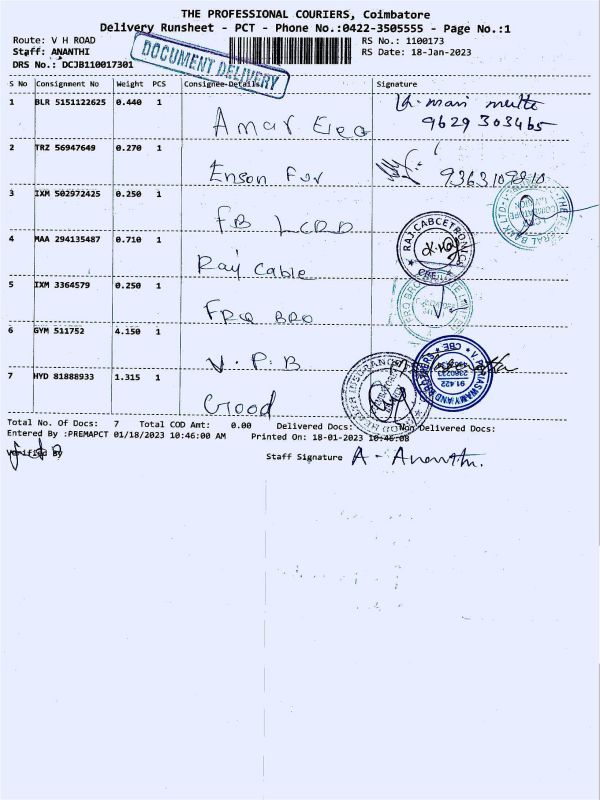 THE PROFESSIONAL COURIERS, Coimbatore
Delivery Runsheet - PCT - Phone No.:0422-3505555 - Page No.:1
Route: V H ROAD
RS No.: 1100173
Staff: ANANTHI
RS Date: 18-Jan-2023
DRS No.: DCJB110017301
DOCUMENT DELIVERY
S No Consignment No Weight PCS Consignee Details Signature
1 BLR 5151122625 0.440 1 Amar
9629303465
2 TRZ 56947649 0.270 1 Enson For 9363109810
3 IXM 502972425 0.250 1 FB
4 MAA 294135487 0.710 1 Raj Cable
RAJ CABCETRONICS
CBE
5 IXM 3364579 0.250 1 BRO
6 GYM 511752 4.150 1 V.P.B
7 HYD 81888933 1.315 1 Good
Total No. Of Docs: 7 Total COD Amt: 0.00 Delivered Docs: Non Delivered Docs:
Entered By :PREMAPCT 01/18/2023 10:46:00 AM Printed On: 18-01-2023 10:46:08
Verified By
Staff Signature A - Ananthi.